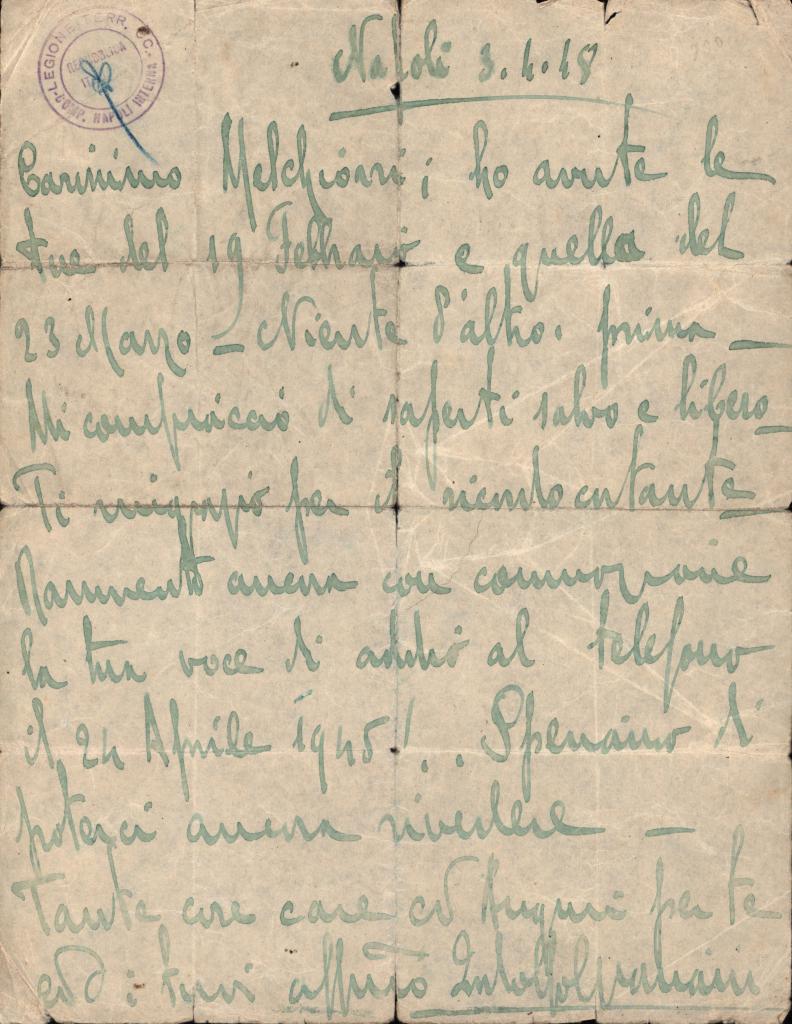 LEGIONE TERR. CC.
COMP. NAPOLI INTERNA
Napoli 3.4.48
Carissimo Melchiorri; ho avute le
tue del 19 Febbraio e quella del
23 Marzo - Niente d'altro. prima -
Mi compiaccio di saperti salvo e libero -
Ti ringrazio per il ricordo costante -
Rammento ancora con commozione
la tua voce di addio al telefono
il 24 Aprile 1945!.. Speriamo di
poterci ancora rivedere -
Tante cose care ed Auguri per te
ed i tuoi affmo